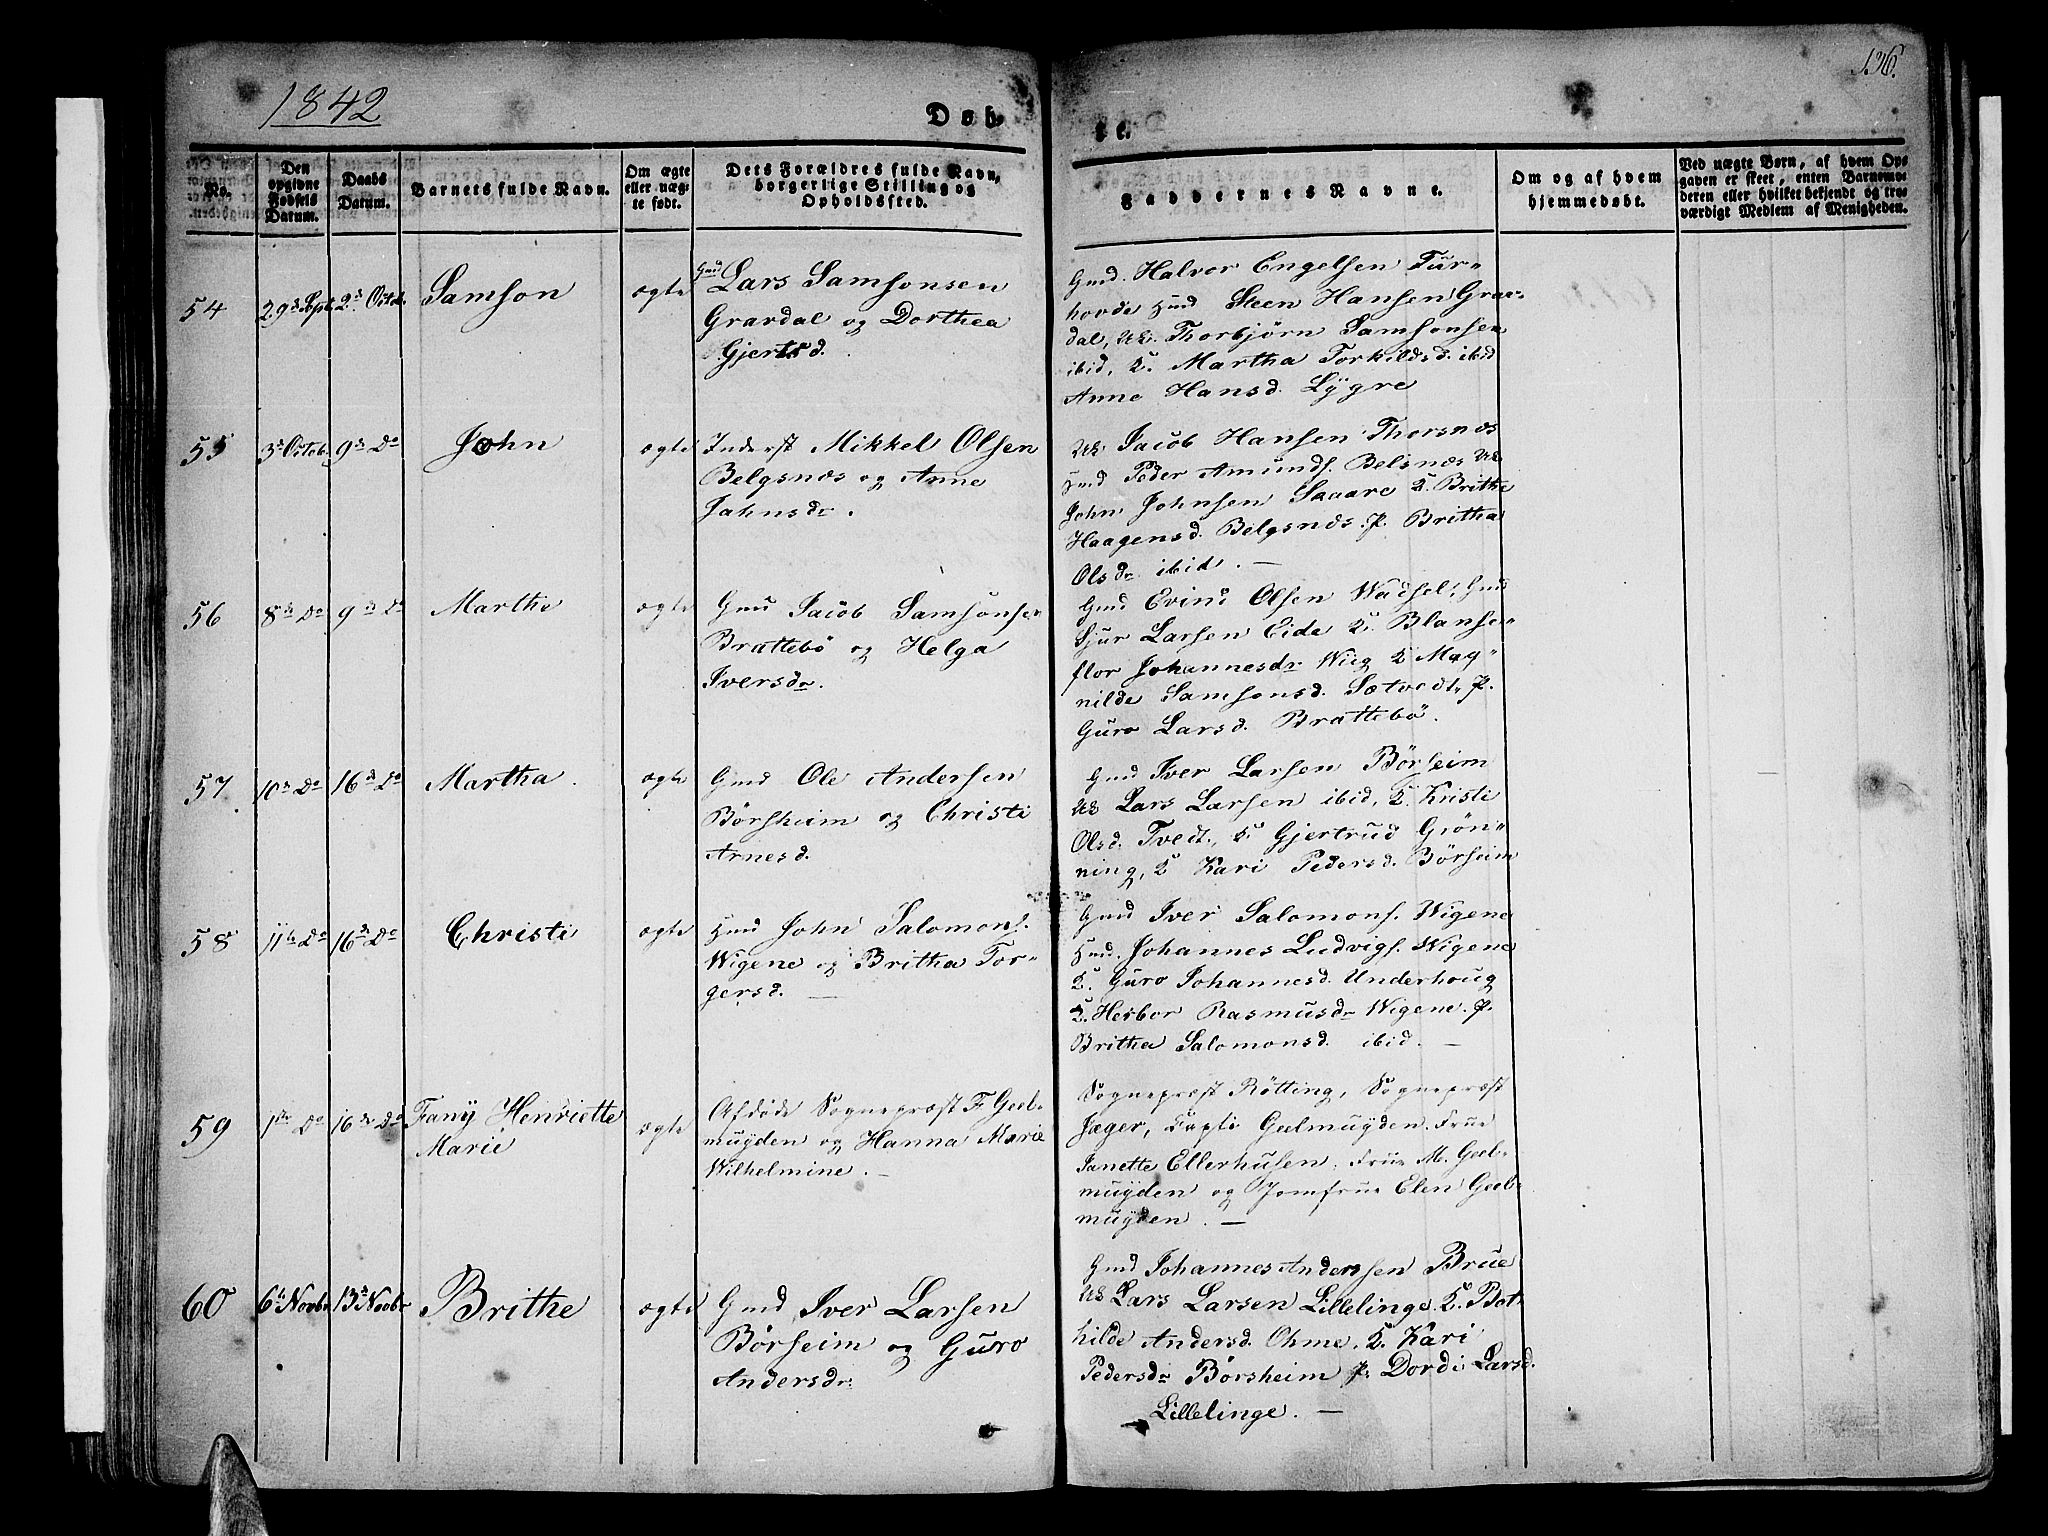 1842
136.
Døb-
te.
No.
Den
opgivne
Fødsels
Datum.
Daabs
Datum.
Barnets fulde Navn.
Om ægte
eller uæg-
te født.
Dets Forældres fulde Navn,
borgerlige Stilling og
Opholdssted.
Faddernes Navne.
Om og af hvem
hjemmedøbt.
Ved uægte Børn, af hvem Op-
gaven er skeet, enten Barnemo-
deren eller hvilket bekjendt og tro-
værdigt Medlem af Menigheden.
54
29de Sept.
2den Octob.
Samson
ægte
Gmd Lars Samsonsen
Gravdal og Dorthea
Gjertsd.
Gmd. Halvor Engelsen Tur-
hovde Hmd Steen Hansen Grav-
dal, Uk. Thorbjörn Samsonsen
ibid, K. Martha Torkildsd. ibid
Anne Hansd. Lygre
55
3de Octob.
9de Do
John
ægte
Inderst Mikkel Olsen
Belgsnæs og Anne
Jahnsdr.
Uk. Jacob Hansen Thorsnæs
Hmd Peder Amunds. Belsnæs Uk
John Johnsen Skaare K. Brithe
Haagensd. Belgsnæs. P. Britha
Olsdr ibid. —
56
8de Do
9de Do
Marthe
ægte
Gmd Jacob Samsonsen
Brattebö og Helga
Iversdr.
Gmd Evind Olsen Wadsel, Gmd
Sjur Larsen Eide K. Blanse-
flor Johannesdr Wiig K Mag-
nilde Samsonsd. Sætvedt, P.
Guro Larsd. Brattebö.
57
10de Do
16de Do
Martha
ægte
Gmd Ole Andersen
Börsheim og Christi
Arnesd.
Gmd Iver Larsen Börseim
Uk Lars Larsen ibid, K. Kristi
Olsd. Tvedt, K. Gjertrud Grön-
ning, K Kari Pedersd. Börseim
58
11te Do
16de Do
Christi
ægte
Hmd John Salomons.
Wigene og Britha Tor-
gersd. —
Gmd Iver Salomons. Wigene
Hmd. Johannes Ludvigs. Wigene
K. Guro Johannesd. Underhoug
K. Herbor Rasmusdr Wigene. P.
Britha Salomonsd. ibid. —
59
1ste Do
16de Do
Fany Henriette
Marie
ægte
Afdöde Sognepræst F. Geel-
muyden og Hanna Marie
Wilhelmine. —
Sognepræst Rötting, Sognepræst
Jæger, Capt. Geelmuyden. Frue
Janette Ellerhusen, Frue M. Geel-
muyden og Jomfrue Elen Geel-
muyden. —
60
6te Novbr
13de Novbr
Brithe
ægte
Gmd Iver Larsen
Börseim og Guro
Andersdr.
Gmd Johannes Andersen Brue
Uk Lars Larsen Lillelinge. K. Bot-
hilde Andersd. Ohme, K. Kari
Pedersdr Börsheim P. Dordi Larsd.
Lillelinge. —